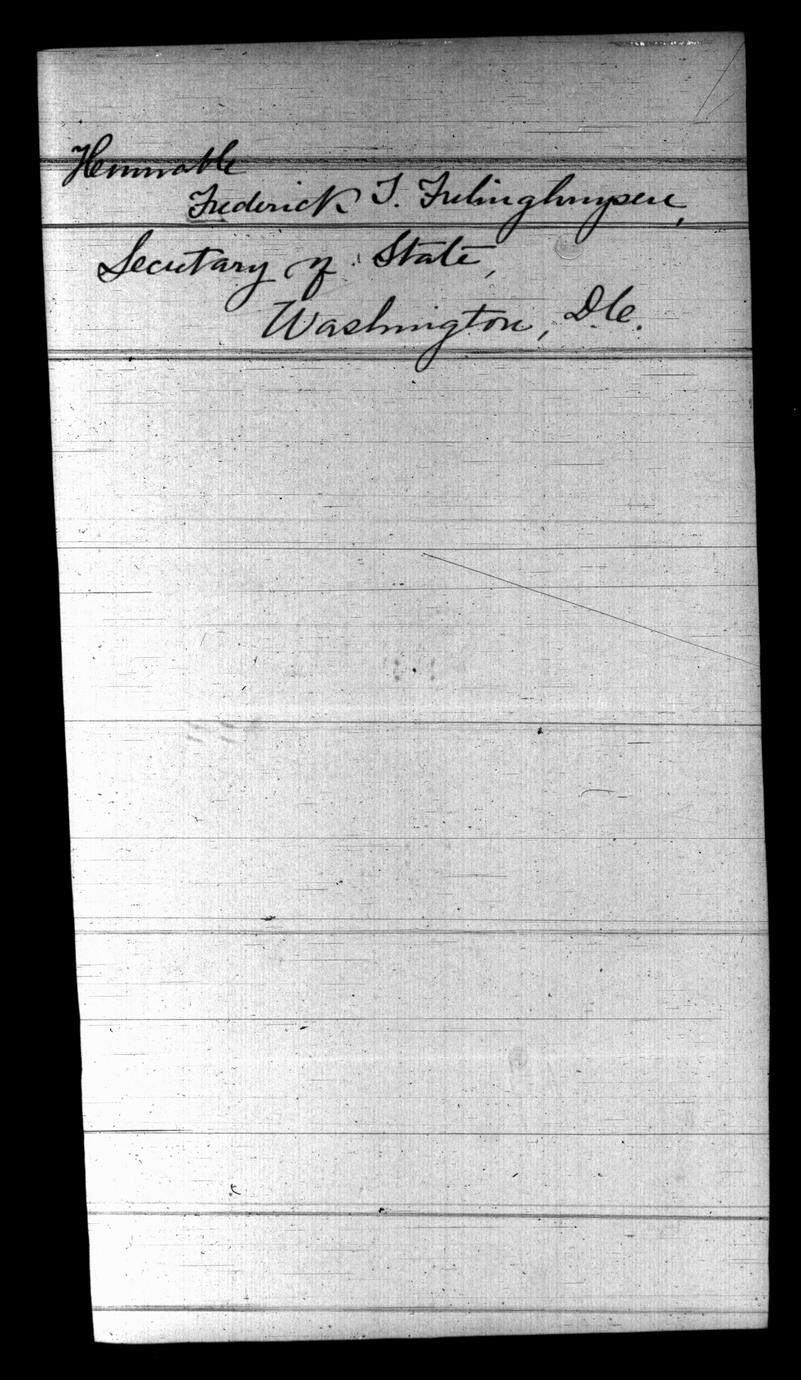 Honorable
Frederick T. Frelinghuysen,
Secretary of State,
Washington, D.C.